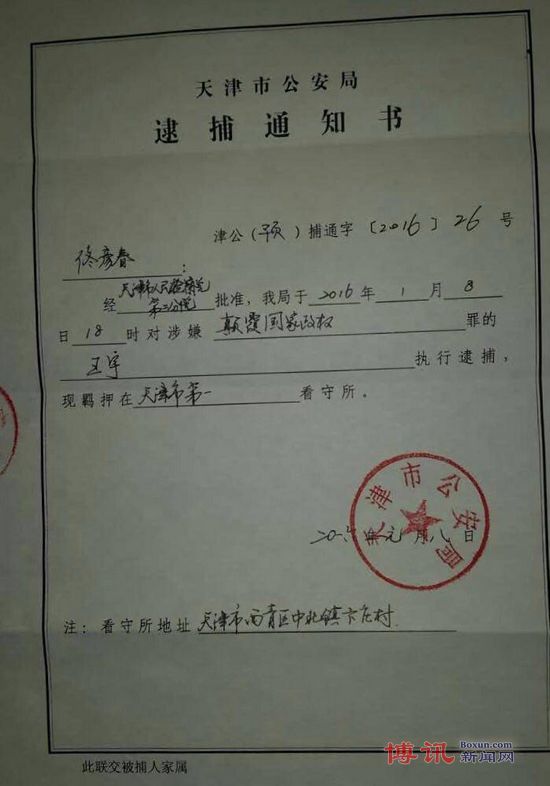 天津市公安局
逮捕通知书
津公（预）捕通字〔2016〕26号
佟彦春：
经天津市人民检察院第二分院批准，我局于2016年1月8
日18时对涉嫌颠覆国家政权罪的
王宇执行逮捕，
现羁押在天津市第一看守所。
天津市公安局
二〇一六年元月八日
注：看守所地址天津市西青区中北镇卞庄村
此联交被捕人家属
博讯 Boxun.com 新闻网